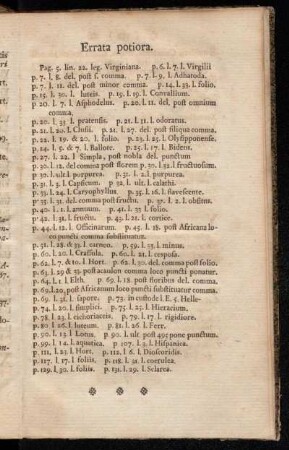 Errata potiora.
Pag. 5. lin. 22. leg. Virginiana. p. 6. l. 7. l. Virgilii
p. 7. l. 8. del. post f. comma. p. 7. l. 9. l. Adhatoda.
p. 7. l. 12. del. post minor comma. p. 14. l. 33. l. folio.
p. 15. l. 30. l. luteis. p. 19. l. 19. l. Convallium.
p. 20. l. 7. l. Asphodelus. p. 20. l. 12. del. post omnium
comma.
p. 20. l. 33. l. pratensis. p. 21. l. 31. l. odoratus.
p. 21. l. 20. l. Clusii. p. 21. l. 27. del. post siliqua comma.
p. 22. l. 19. & 20. l. folio. p. 23. l. 25. l. Olyssipponense.
p. 24. l. 5. & 7. l. Ballote. p. 25. l. 17. l. Bidens.
p. 27. l. 22. l. Simpla, post nobla del. punctum
p. 30. l. 12. del comma post florem p. 30. l. 32. l. fructuosim.
p. 30. l. ult. l. porpurea. p. 31. l. 2. l. purpurea.
p. 31. l. 5. l. Capsicum. p. 32. l. ult. l. calathi.
p. 33. l. 24. l. Caryophyllus p. 35. l. 5. l. flavescente.
p. 35. l. 31. del. comma post fructu. p. 37. l. 2. l. obsens.
p. 40. l. 1. l. annuum. p. 41. l. 33. l. folio.
p. 42. l. 31. l. fructu. p. 43. l. 21. l. cortice.
p. 44. l. 12. l. Officinarum. p. 45. l. 18. post Africana lo-
co puncti comma substituatur.
p. 51. l. 28. & 33. l. carnoso. p. 59. l. 33. l. minus.
p. 60. l. 20. l. Crassula. p. 60. l. 21. l. cesposa.
p. 62. l. 7. & 10. l. Hort. p. 62. l. 30. del. comma post folio.
p. 63. l. 29 & 33. post acaulon comma loco puncti ponatur.
p. 64. l. 1. l. Elth. p. 69. l. 18. post floribus del. comma.
p. 69. l. 20. post Africanum loco puncti substituatur comma.
p. 69. l. 31. l. sapore. p. 73. in custode l. E. 5. Helle-
p. 74. l. 20. l. simplici. p. 75. l. 25. l. Hieracium.
p. 78. l. 23. l. cichoriaceis. p. 79. l. 17. l. rigidiore.
p. 80. l. 26. l. luteum. p. 81. l. 26. l. Ferr.
p. 90. l. 13. l. Lotus. p. 90. l. ult. post 900 pone punctum.
p. 99. l. 14. l. aquatica. p. 107. l. 3. l. Hispanica.
p. 111. l. 23. l. Hort. p. 112. l. 6. l. Dioscoridis.
p. 127. l. 17. l. foliis. p. 118. l. 31. l. coerulea.
p. 129. l. 30. l. foliis. p. 131. l. 29. l. Sclarea.